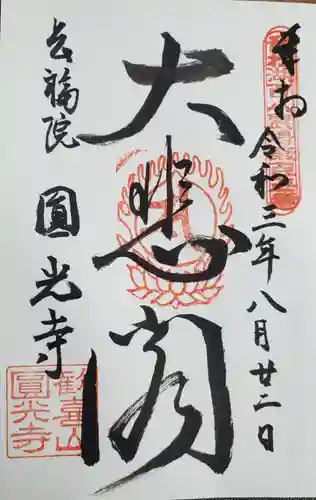 奉拝
令和三年八月廿二日
大悲閣
長福院
圓光寺
歡喜山
圓光寺